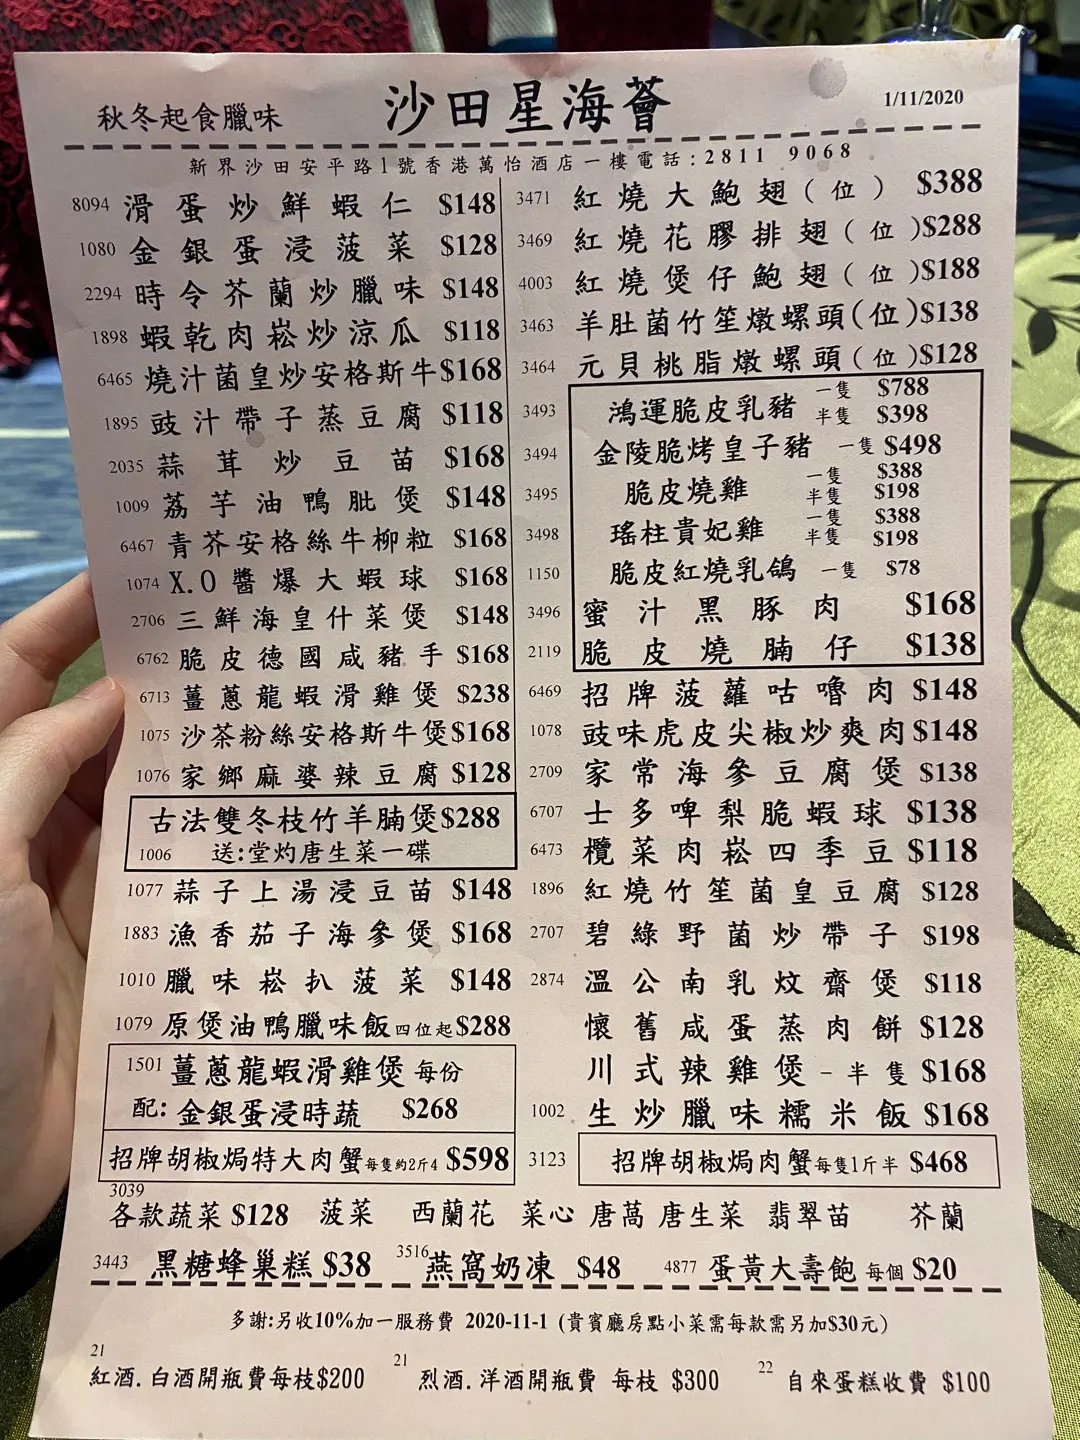 秋冬起食臘味
沙田星海薈
1/11/2020
新界沙田安平路1號香港萬怡酒店一樓電話:2811 9068
8094 滑蛋炒鮮蝦仁 $148
1080 金銀蛋浸菠菜 $128
2294 時令芥蘭炒臘味 $148
1898 蝦乾肉崧炒涼瓜 $118
6465 燒汁菌皇炒安格斯牛$168
1895 豉汁帶子蒸豆腐 $118
2035 蒜茸炒豆苗 $168
1009 荔芋油鴨肶煲 $148
6467 青芥安格絲牛柳粒 $168
1074 X.O醬爆大蝦球 $168
2706 三鮮海皇什菜煲 $148
6762 脆皮德國咸豬手 $168
6713 薑蔥龍蝦滑雞煲 $238
1075 沙茶粉絲安格斯牛煲$168
1076 家鄉麻婆辣豆腐 $128
古法雙冬枝竹羊腩煲$288
1006 送:堂灼唐生菜一碟
1077 蒜子上湯浸豆苗 $148
1883 漁香茄子海參煲 $168
1010 臘味崧扒菠菜 $148
1079 原煲油鴨臘味飯四位起$288
1501 薑蔥龍蝦滑雞煲 每份
配: 金銀蛋浸時蔬 $268
招牌胡椒焗特大肉蟹每隻約2斤4 $598
3471 紅燒大鮑翅(位) $388
3469 紅燒花膠排翅(位)$288
4003 紅燒煲仔鮑翅(位)$188
3463 羊肚菌竹笙燉螺頭(位)$138
3464 元貝桃脂燉螺頭(位)$128
3493 鴻運脆皮乳豬 一隻 $788
半隻 $398
3494 金陵脆烤皇子豬 一隻 $498
3495 脆皮燒雞 一隻 $388
半隻 $198
3498 瑤柱貴妃雞 一隻 $388
半隻 $198
1150 脆皮紅燒乳鴿 一隻 $78
3496 蜜汁黑豚肉 $168
2119 脆皮燒腩仔 $138
6469 招牌菠蘿咕嚕肉 $148
1078 豉味虎皮尖椒炒爽肉$148
2709 家常海參豆腐煲 $138
6707 士多啤梨脆蝦球 $138
6473 欖菜肉崧四季豆 $118
1896 紅燒竹笙菌皇豆腐 $128
2707 碧綠野菌炒帶子 $198
2874 溫公南乳炆齋煲 $118
懷舊咸蛋蒸肉餅 $128
川式辣雞煲-半隻 $168
1002 生炒臘味糯米飯 $168
3123 招牌胡椒焗肉蟹每隻1斤半 $468
3039
各款蔬菜 $128 菠菜 西蘭花 菜心 唐萵 唐生菜 翡翠苗 芥蘭
3443 黑糖蜂巢糕 $38 3516 燕窩奶凍 $48 4877 蛋黃大壽飽 每個 $20
多謝:另收10%加一服務費 2020-11-1 (貴賓廳房點小菜需每款需另加$30元)
21 紅酒.白酒開瓶費每枝$200 21 烈酒.洋酒開瓶費 每枝 $300 22 自來蛋糕收費 $100